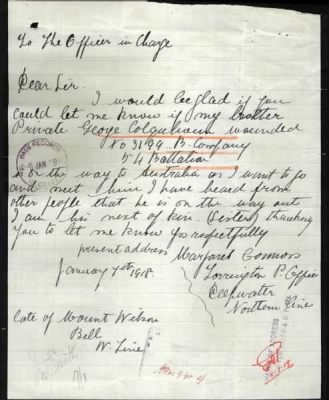 To The Officer in Charge
Dear Sir.
I would be glad if you
could let me know if my brother
Private George Colquhoun wounded
No 3199 B. Company
54 Battalion
is on the way to Australia as I want to go
and meet him I have heard from
other people that he is on the way out
I am his next of kin (sister) thanking
you to let me know yo respectfully
present address Margaret Connors
January 7st 1918. Torrington P. Office
Deepwater
Northern Line
late of Mount Wilson
Bell
W. Line
BASE RECORDS
JAN 19
ADDRESS